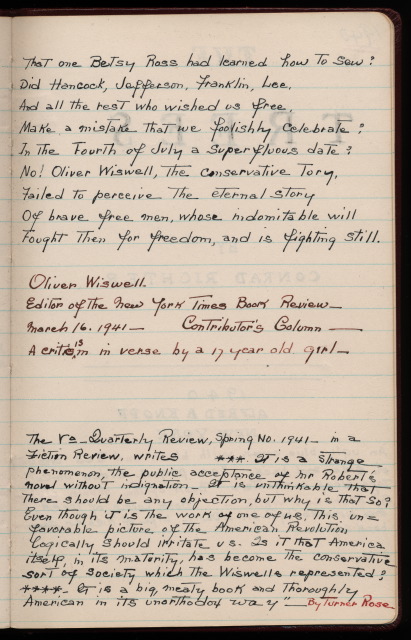 That one Betsy Ross had learned how to sew?
Did Hancock, Jefferson, Franklin, Lee,
And all the rest who wished us free,
Make a mistake that we foolishly celebrate?
In the Fourth of July a superfluous date?
No! Oliver Wiswell, the conservative Tory,
Failed to perceive the eternal story
Of brave free men, whose indomitable will
Fought then for freedom, and is fighting still.
Oliver Wiswell.
Editor of the New York Times Book Review—
March 16. 1941— Contributor's Column —
A critism in verse by a 17 year old girl—
The Va-Quarterly Review, Spring No. 1941— in a
Fiction Review, writes ***. It is a strange
phenomenon, the public acceptance of Mr Robert's
novel without indignation— It is unthinkable that
there should be any objection, but why is that so?
Even though it is the work of one of us, this un=
favorable picture of the American Revolution
logically should irritate us. Is it that America
itself, in its maturity, has become the conservative
sort of society which the Wiswells represented?
****- It is a big, meaty book and thoroughly
American in its unorthodox way" — By Turner Rose